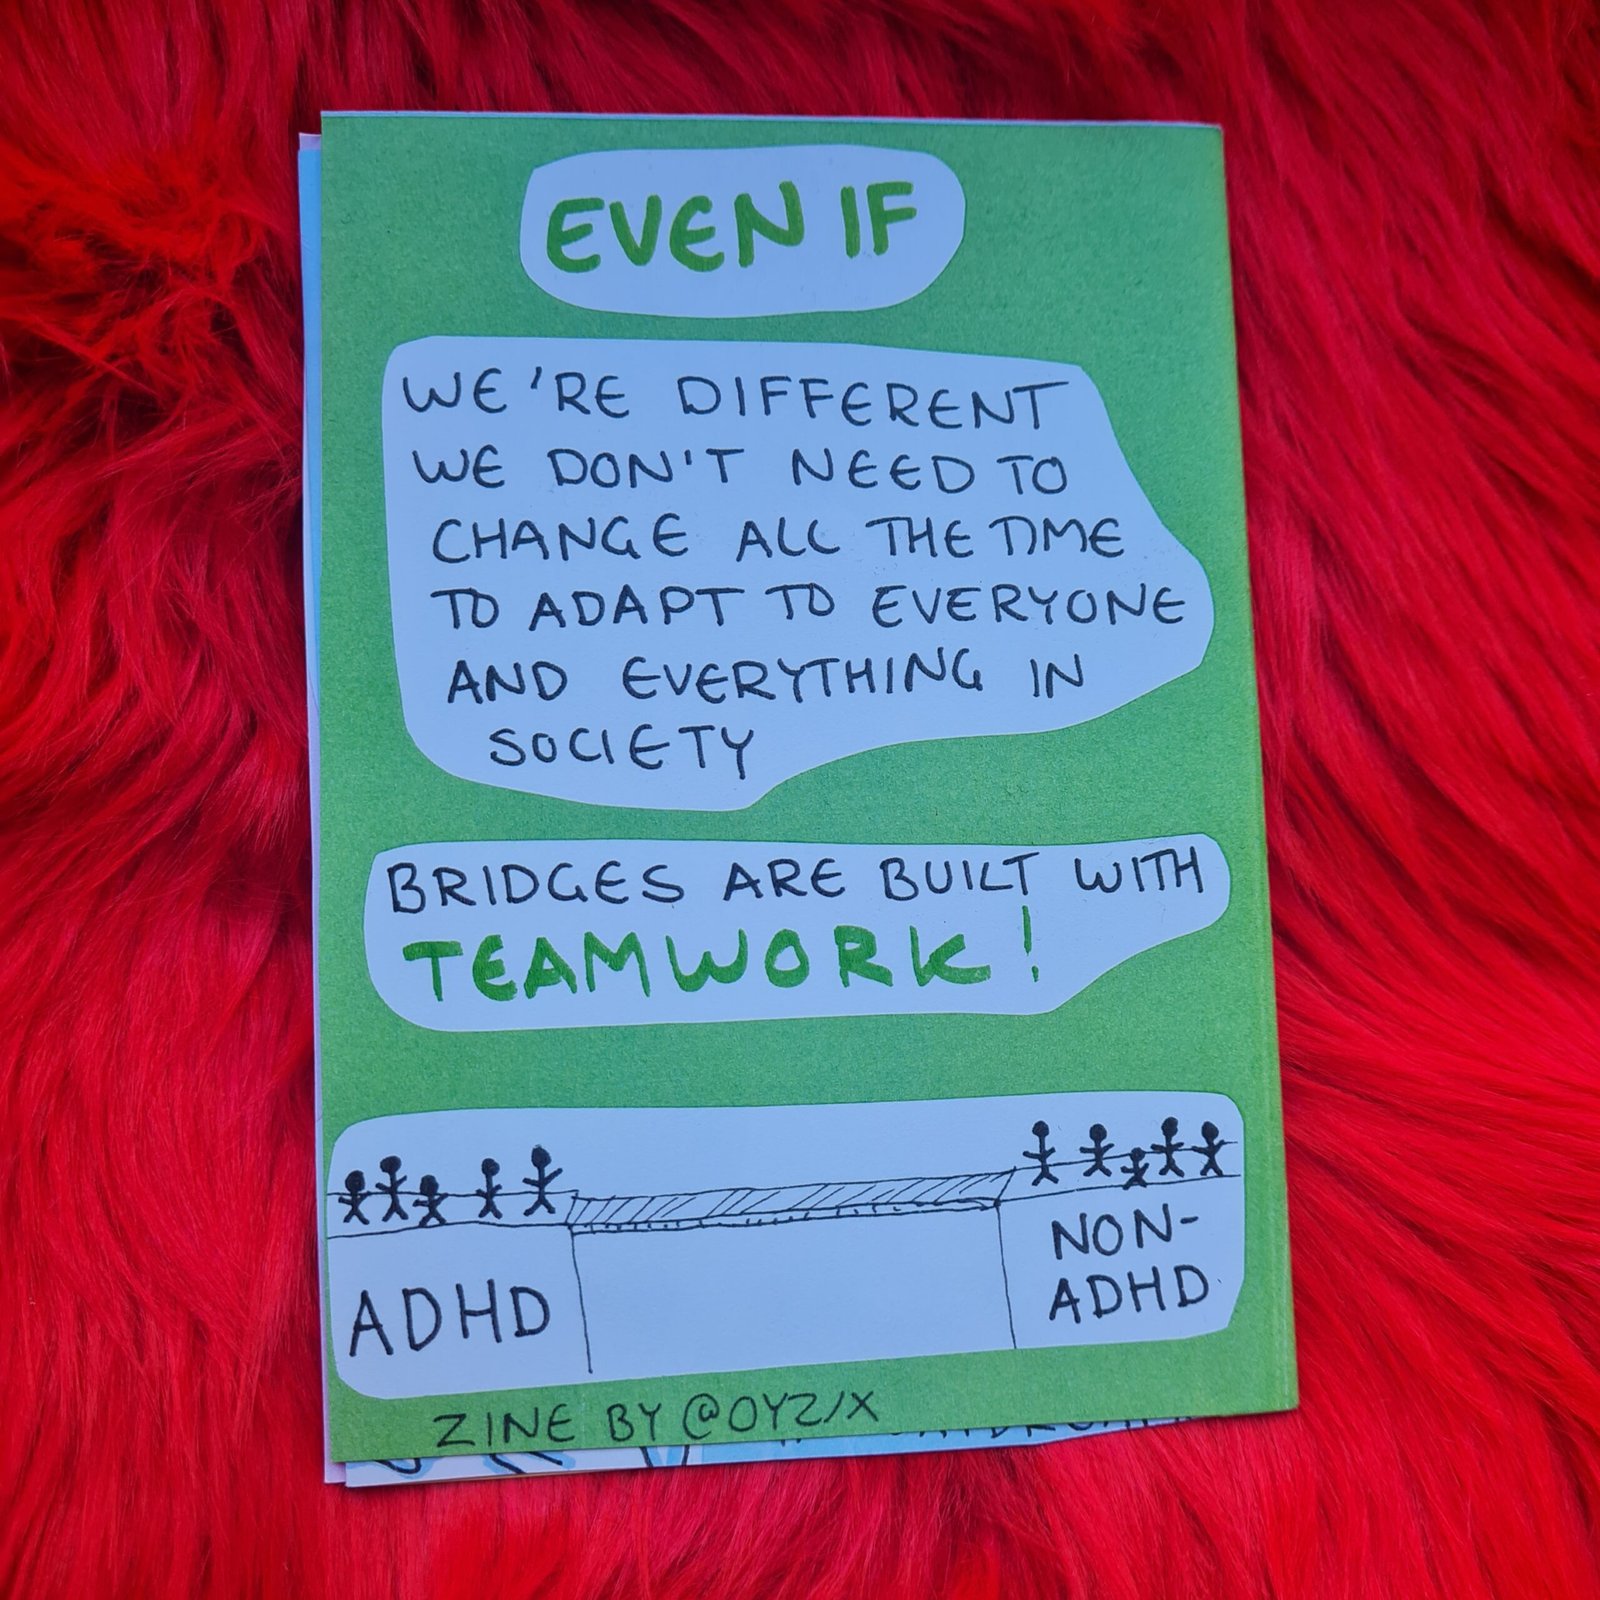 EVEN IF
WE'RE DIFFERENT
WE DON'T NEED TO
CHANGE ALL THE TIME
TO ADAPT TO EVERYONE
AND EVERYTHING IN
SOCIETY
BRIDGES ARE BUILT WITH
TEAMWORK!
ADHD
NON-
ADHD
ZINE BY @OYZIX